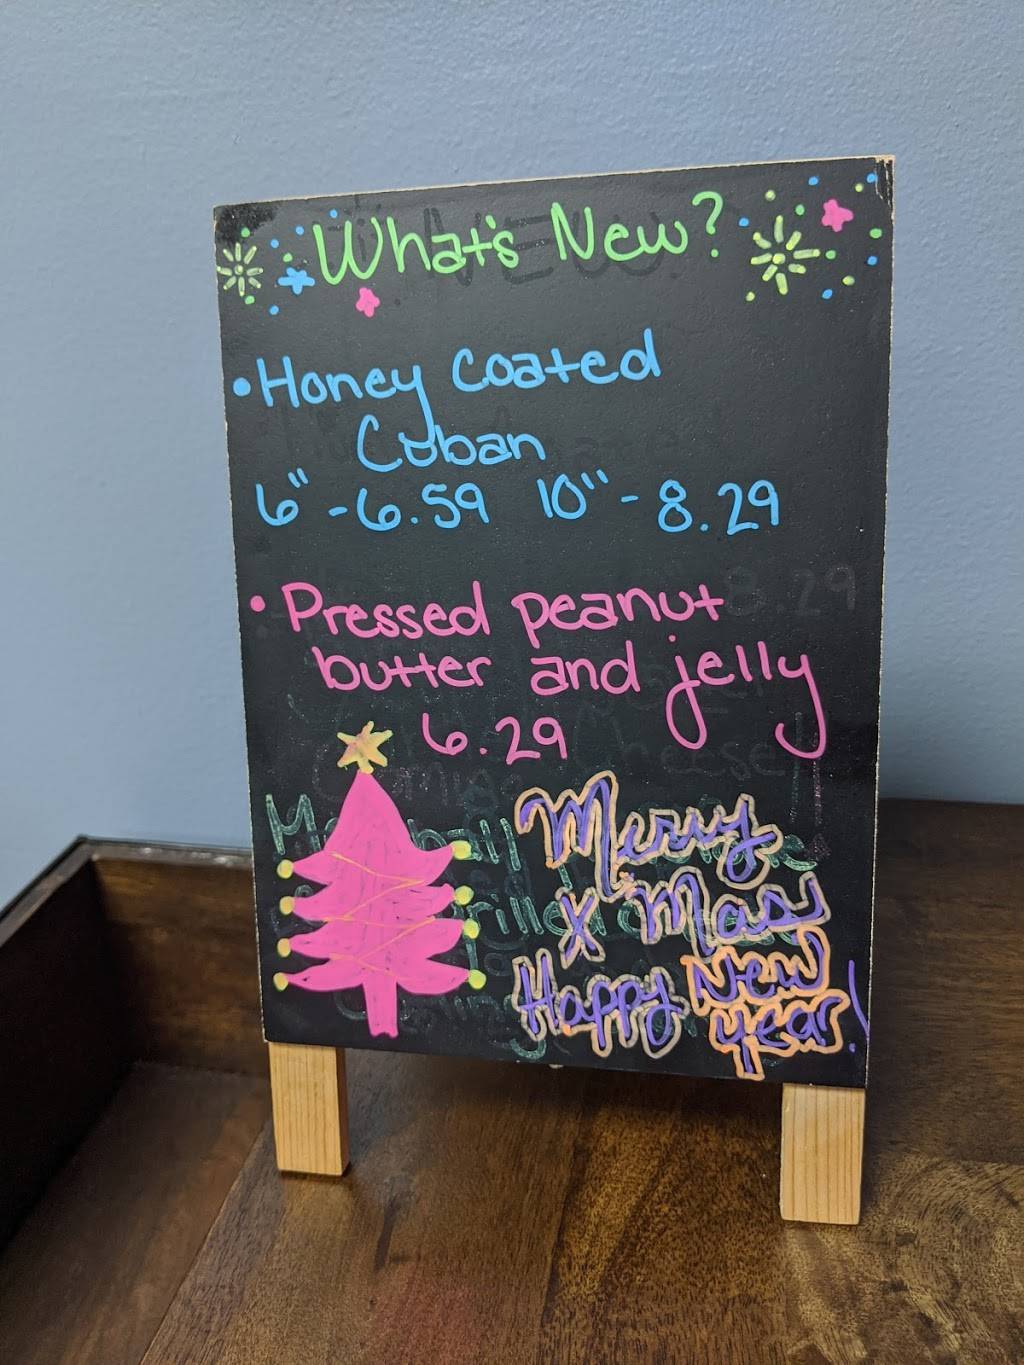 What's New?
• Honey Coated
Cuban
6" - 6.59 10" - 8.29
• Pressed peanut
butter and jelly
6.29
Merry
X Mas
Happy New
year!
8.29
Cheese!!